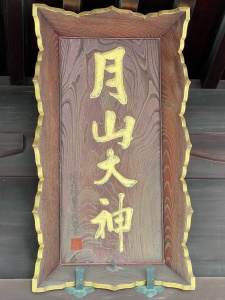 月山大神